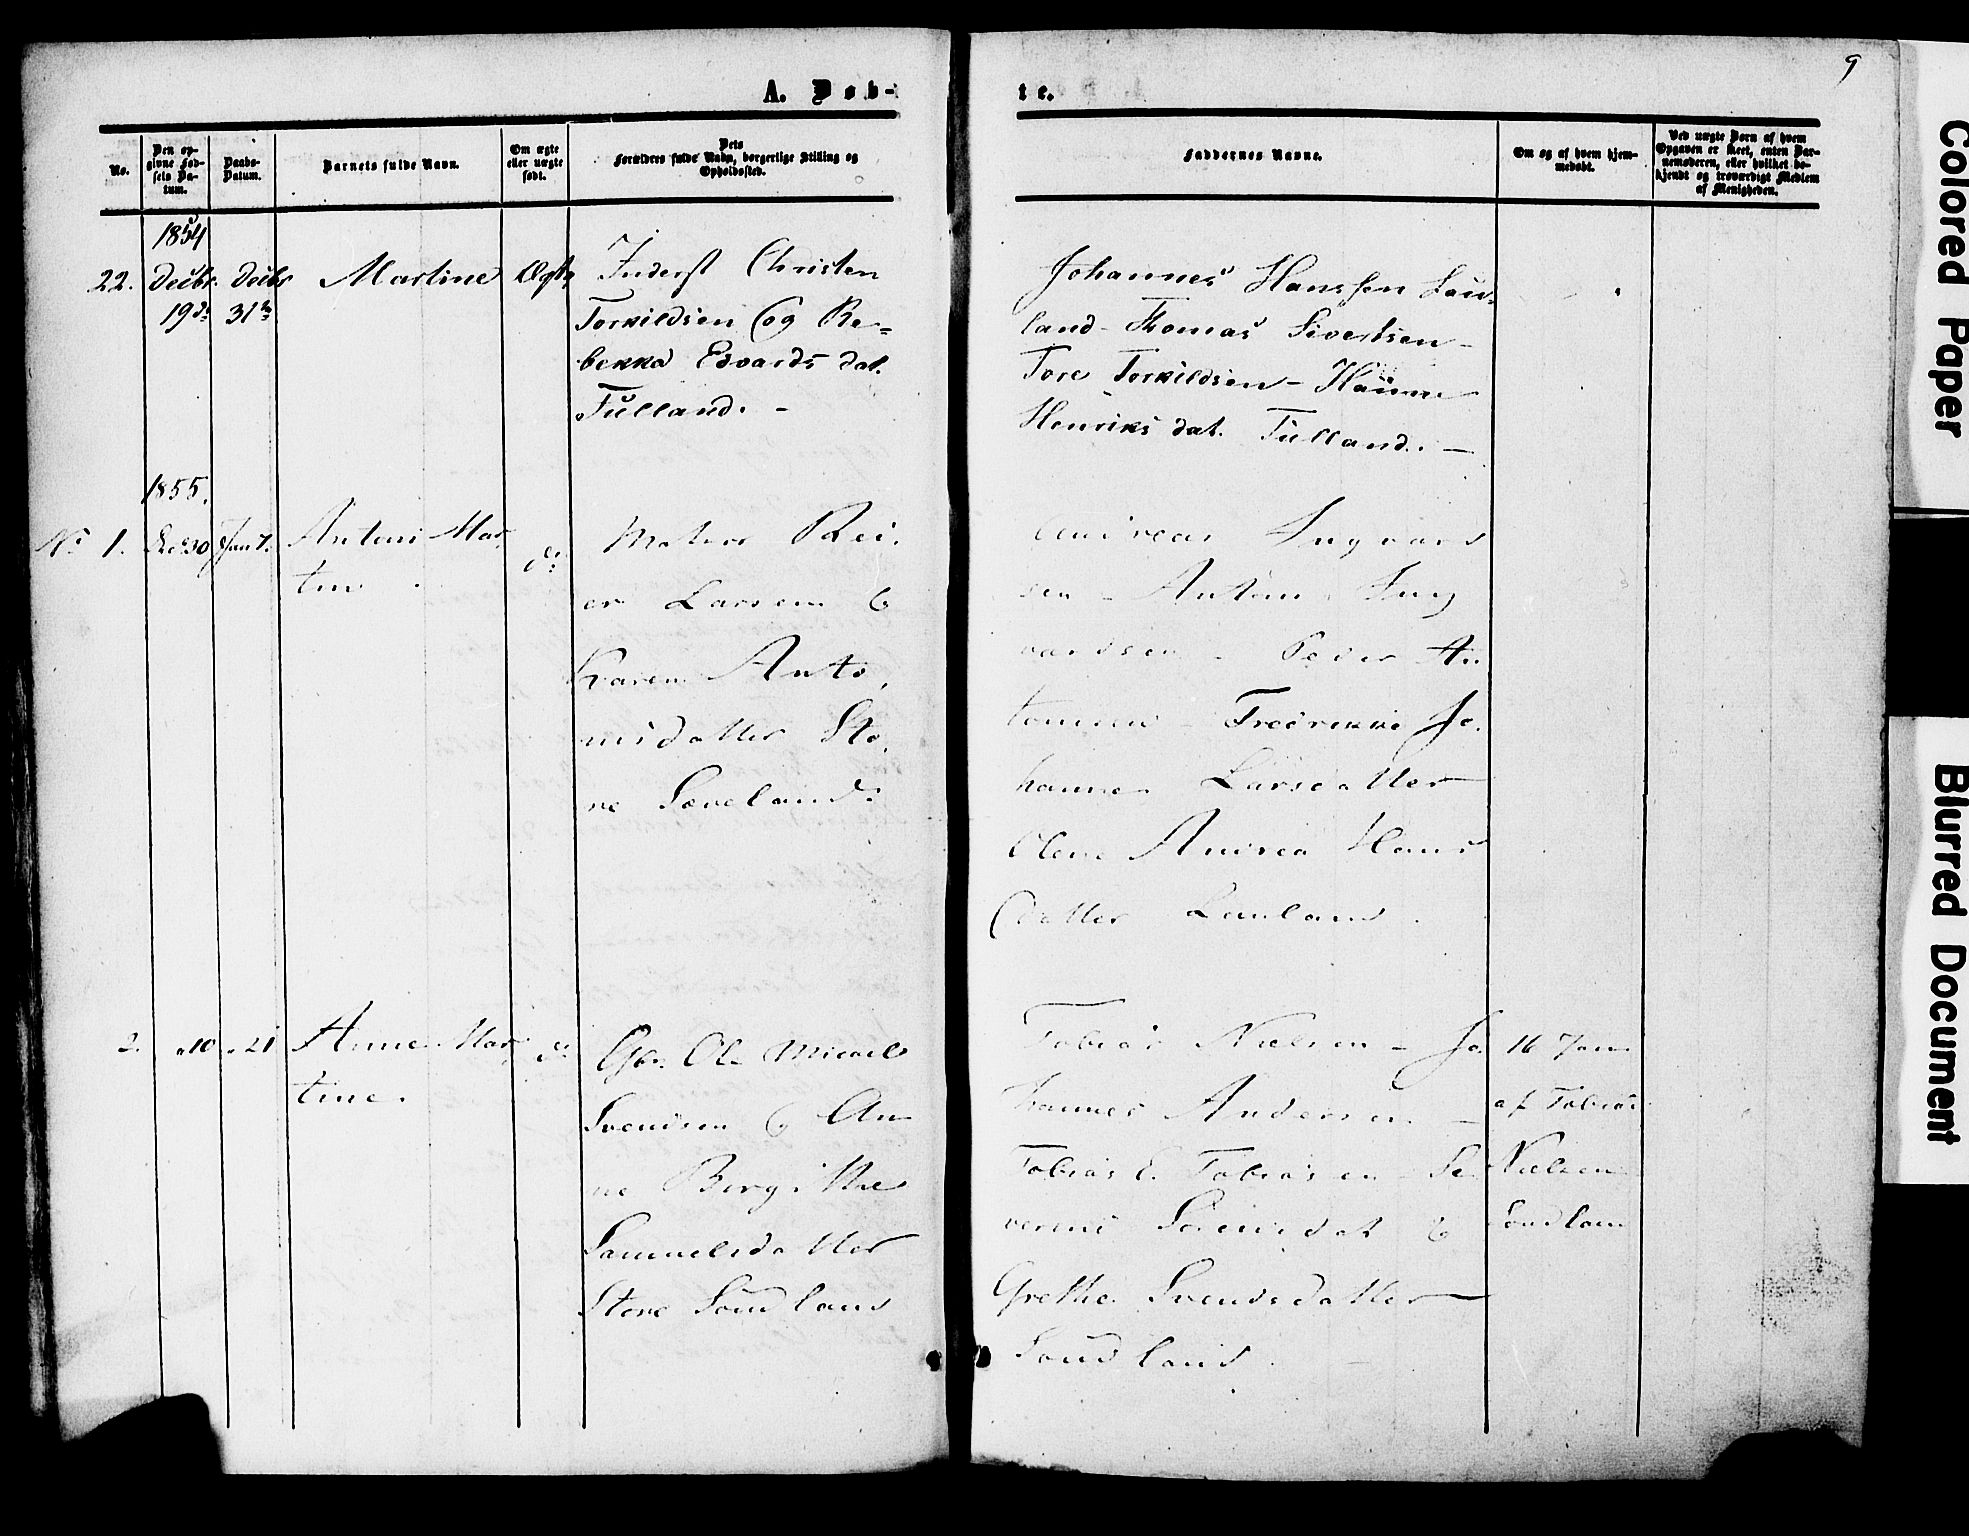 9
A. Døb-
te.
No.
Den op-
givne Fød-
sels Da-
tum.
Daabs-
Datum.
Barnets fulde Navn.
Om ægte
eller uægte
født.
Dets
Forældres fulde Navn, borgerlige Stilling og
Opholdssted.
Faddernes Navne.
Om og af hvem hjem-
medøbt.
Ved uægte Barn af hvem
Opgaven er skeet, enten Bar-
nemoderen, eller hvilket be-
kjendt og troværdigt Medlem
af Menigheden.
1854
22. Decbr. Decbr Martine Ægte Inderst Christen
19de 31te
Torkildsen og Re-
bekka Edvards dat.
Tulland. -
Johannes Hanssen Lau-
land - Thomas Sivertsen -
Tore Torkildsen - Hanne
Henriks dat. Tulland. -
1855.
No 1. Dec 30 Jan 7. Antoni Mar
tin
do
Matros Rei
er Larsen &
Karen Anto
nisdatter Sto
re
Andreas Ingvard
sen - Anton Ing
vardsen - Peder An
tonsen Fredrikke Jo
hanne Larsdatter
Olene Andrea Hans
datter Lauland
2. " 10 " 21 Anne Mar
tine.
do
Gbr. Ole Micael
Svendsen & An
ne Birgithe
Samuelsdatter
Store Soudland
Tobias Nielsen - Jo
hannes Andersen -
Tobias E. Tobiasen Se
verine Sørensdat &
Grethe Svendsdatter
Soudland.
16 Jan
af Tobias
Nielsen
Soudland
Colored Paper
Blurred Document